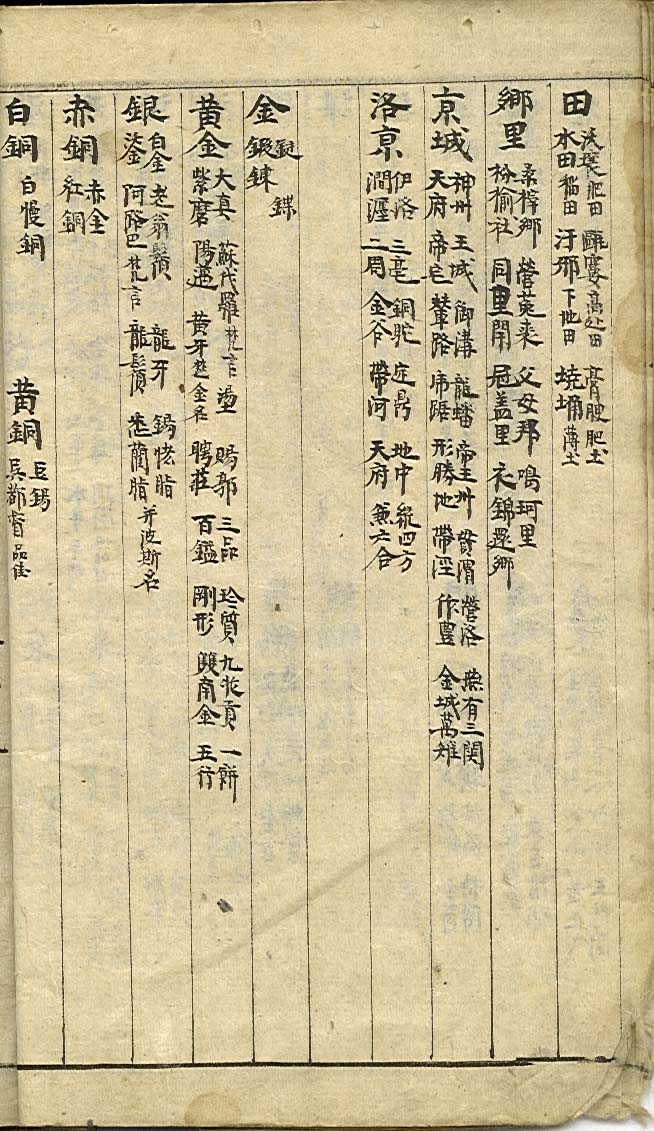 田 沃壤肥田 甌窶高处田 膏腴肥土
水田稲田 汙邪下地田 墝埆薄土
鄉里 桑梓鄉 營菟裘 父母邦 鳴珂里
枌榆社 同里閈 冠盖里 衣錦還鄉
京城 神州 王城 御溝 龍蟠 帝王州 貫渭 營洛 典有三関
天府 帝宅 輦路 帝踞 形勝地 帶涇 作豊 金城萬雉
洛京 伊洛 三亳 銅駝 定鼎 地中 綰四方
澗瀍 二周 金谷 帶河 天府 兼六合
金 鋌 鏶
鍛錬
黄金 大真 蘇伐羅梵言 璗 賜郭 三品 玲質 九牧貢 一餅
紫磨 陽邁 黄牙楚金名 聘莊 百鎰 剛形 雙南金 五行
銀 白金 老翁鬚 龍牙 錫恅脂
鋈 阿路巴梵言 龍鬚 悉藺脂 並波斯名
赤銅 赤金
紅銅
白銅 白慢銅
黄銅 巨錫
吳都賓品佳